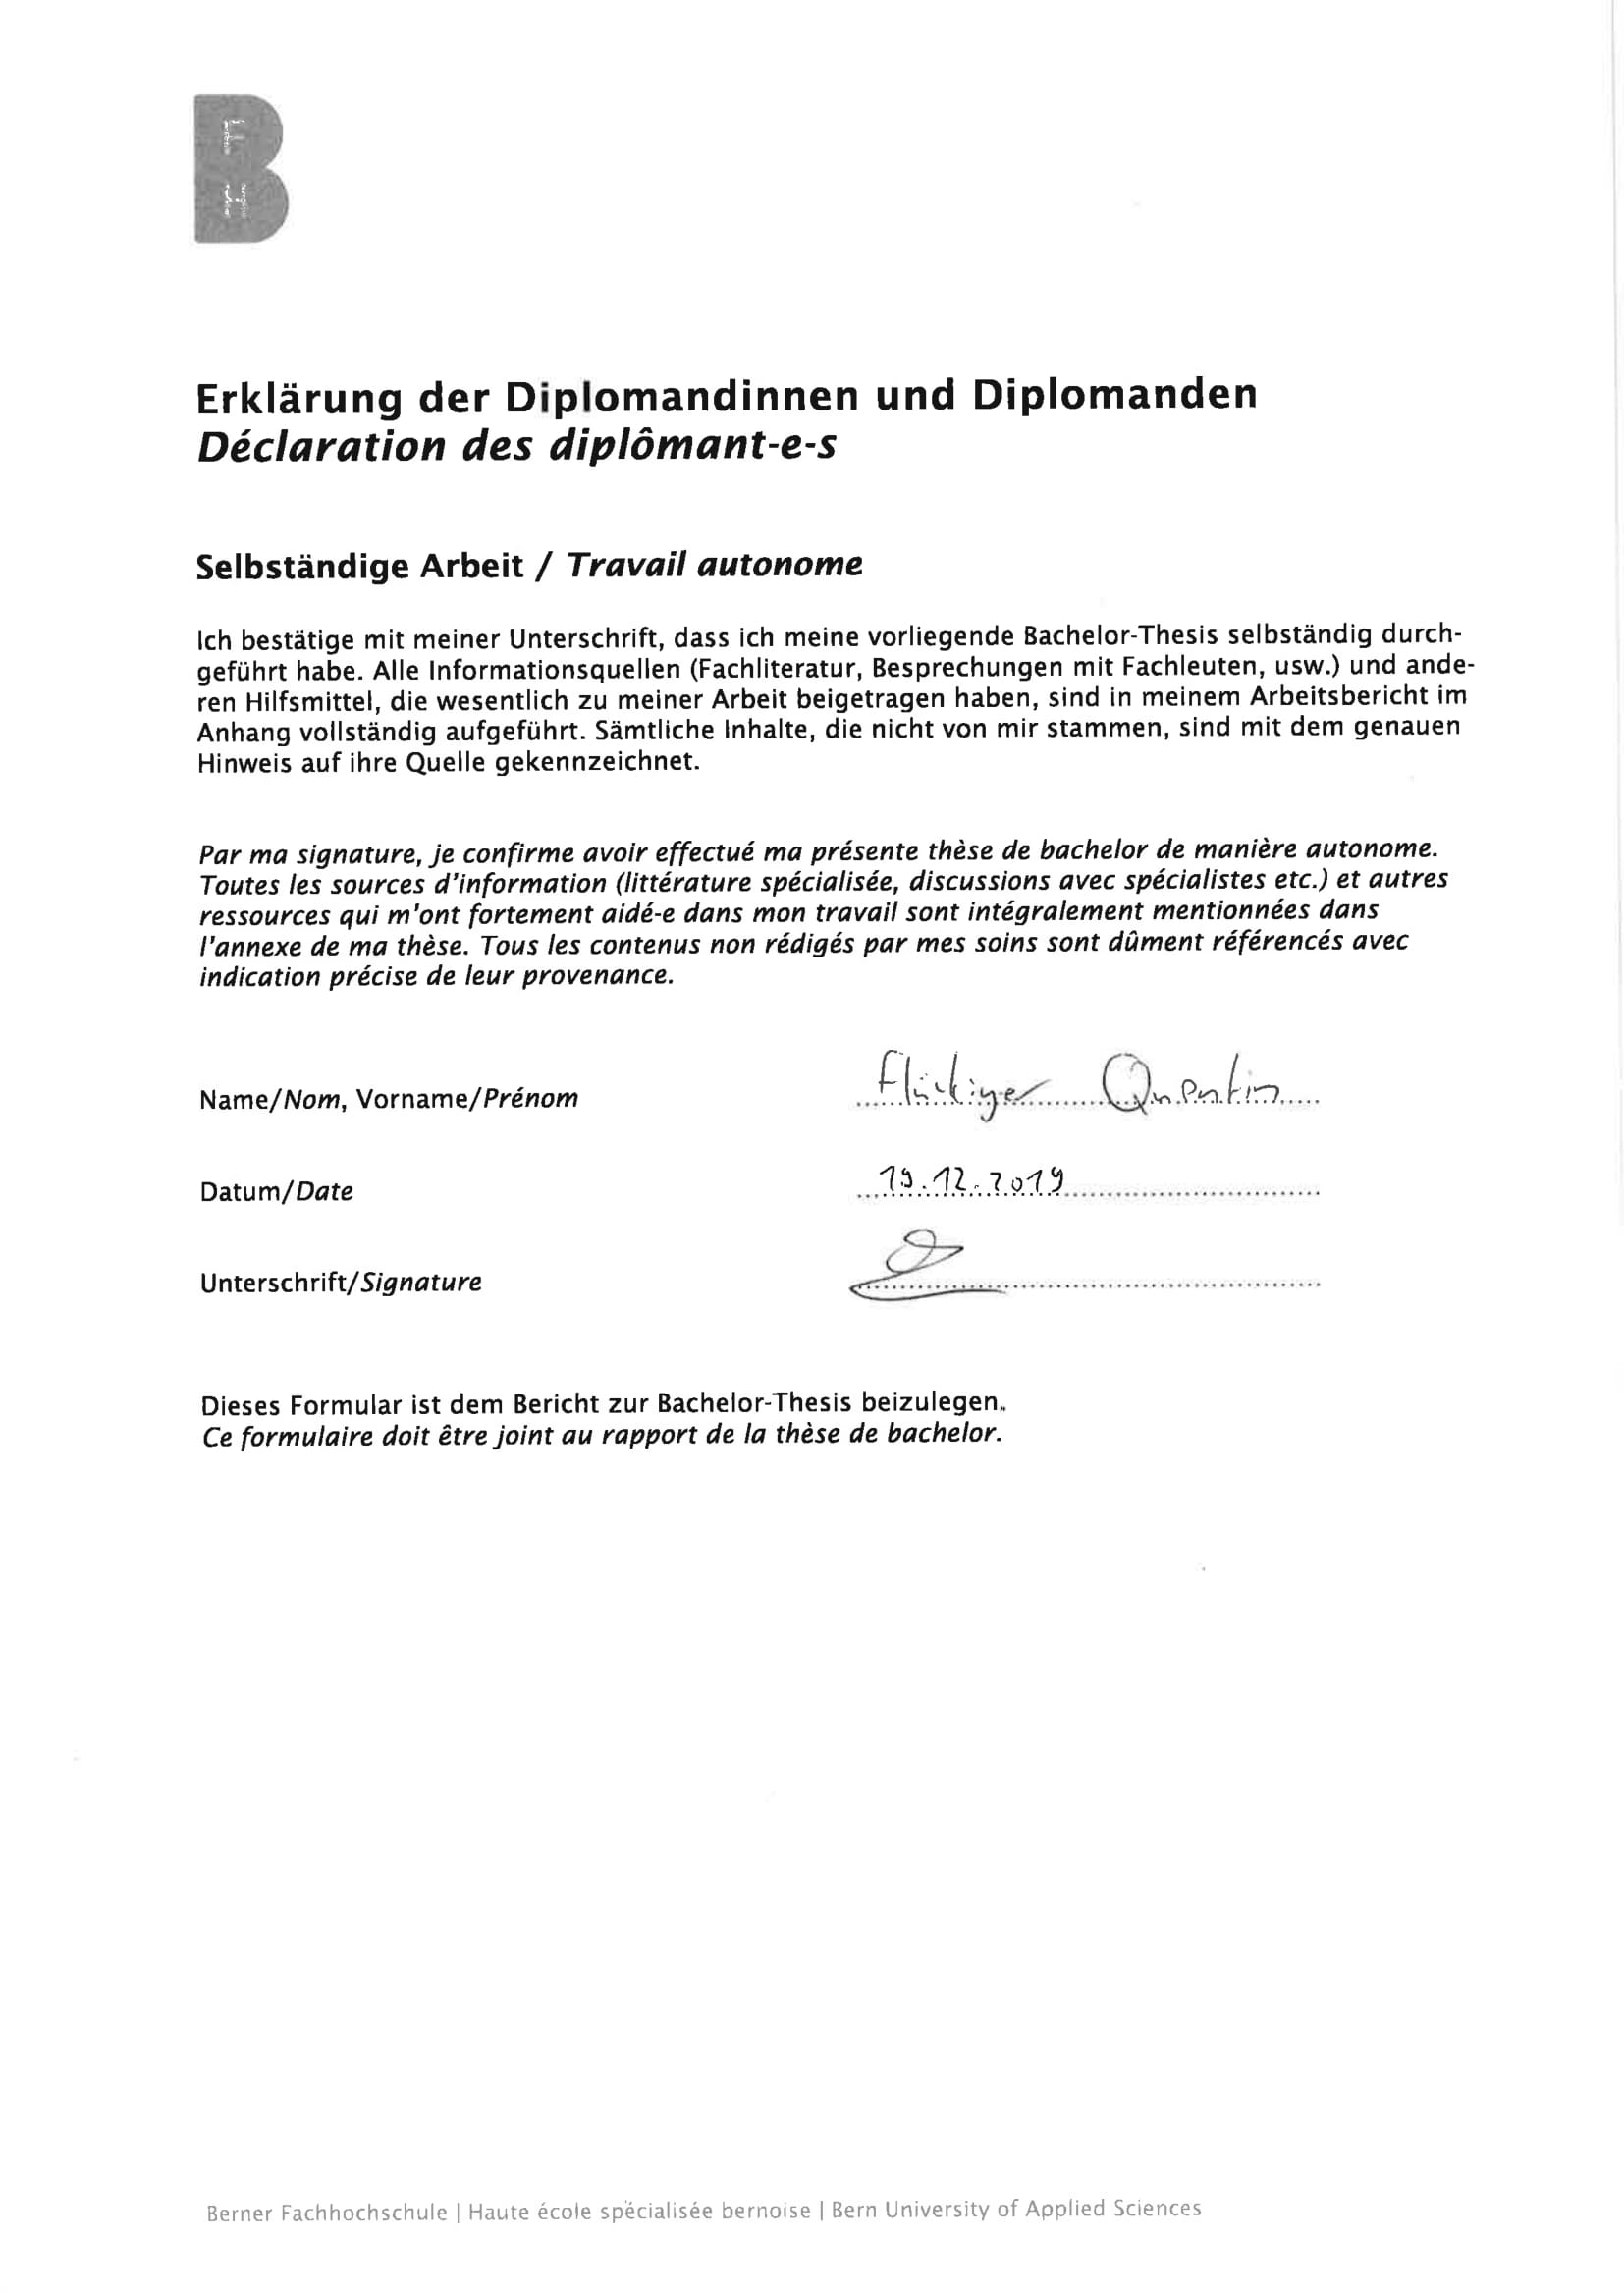 Erklärung der Diplomandinnen und Diplomanden
Déclaration des diplômant-e-s
Selbständige Arbeit / Travail autonome
Ich bestätige mit meiner Unterschrift, dass ich meine vorliegende Bachelor-Thesis selbständig durch-
geführt habe. Alle Informationsquellen (Fachliteratur, Besprechungen mit Fachleuten, usw.) und ande-
ren Hilfsmittel, die wesentlich zu meiner Arbeit beigetragen haben, sind in meinem Arbeitsbericht im
Anhang vollständig aufgeführt. Sämtliche Inhalte, die nicht von mir stammen, sind mit dem genauen
Hinweis auf ihre Quelle gekennzeichnet.
Par ma signature, je confirme avoir effectué ma présente thèse de bachelor de manière autonome.
Toutes les sources d'information (littérature spécialisée, discussions avec spécialistes etc.) et autres
ressources qui m'ont fortement aidé-e dans mon travail sont intégralement mentionnées dans
l'annexe de ma thèse. Tous les contenus non rédigés par mes soins sont dûment référencés avec
indication précise de leur provenance.
Name/Nom, Vorname/Prénom Flückiger Quentin
Datum/Date 19.12.2019
Unterschrift/Signature
Dieses Formular ist dem Bericht zur Bachelor-Thesis beizulegen.
Ce formulaire doit être joint au rapport de la thèse de bachelor.
Berner Fachhochschule | Haute école spécialisée bernoise | Bern University of Applied Sciences